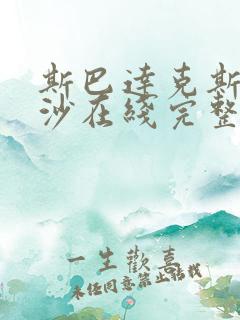 斯巴达克斯
沙在线完整
一生歡喜
未经同意禁止搭我